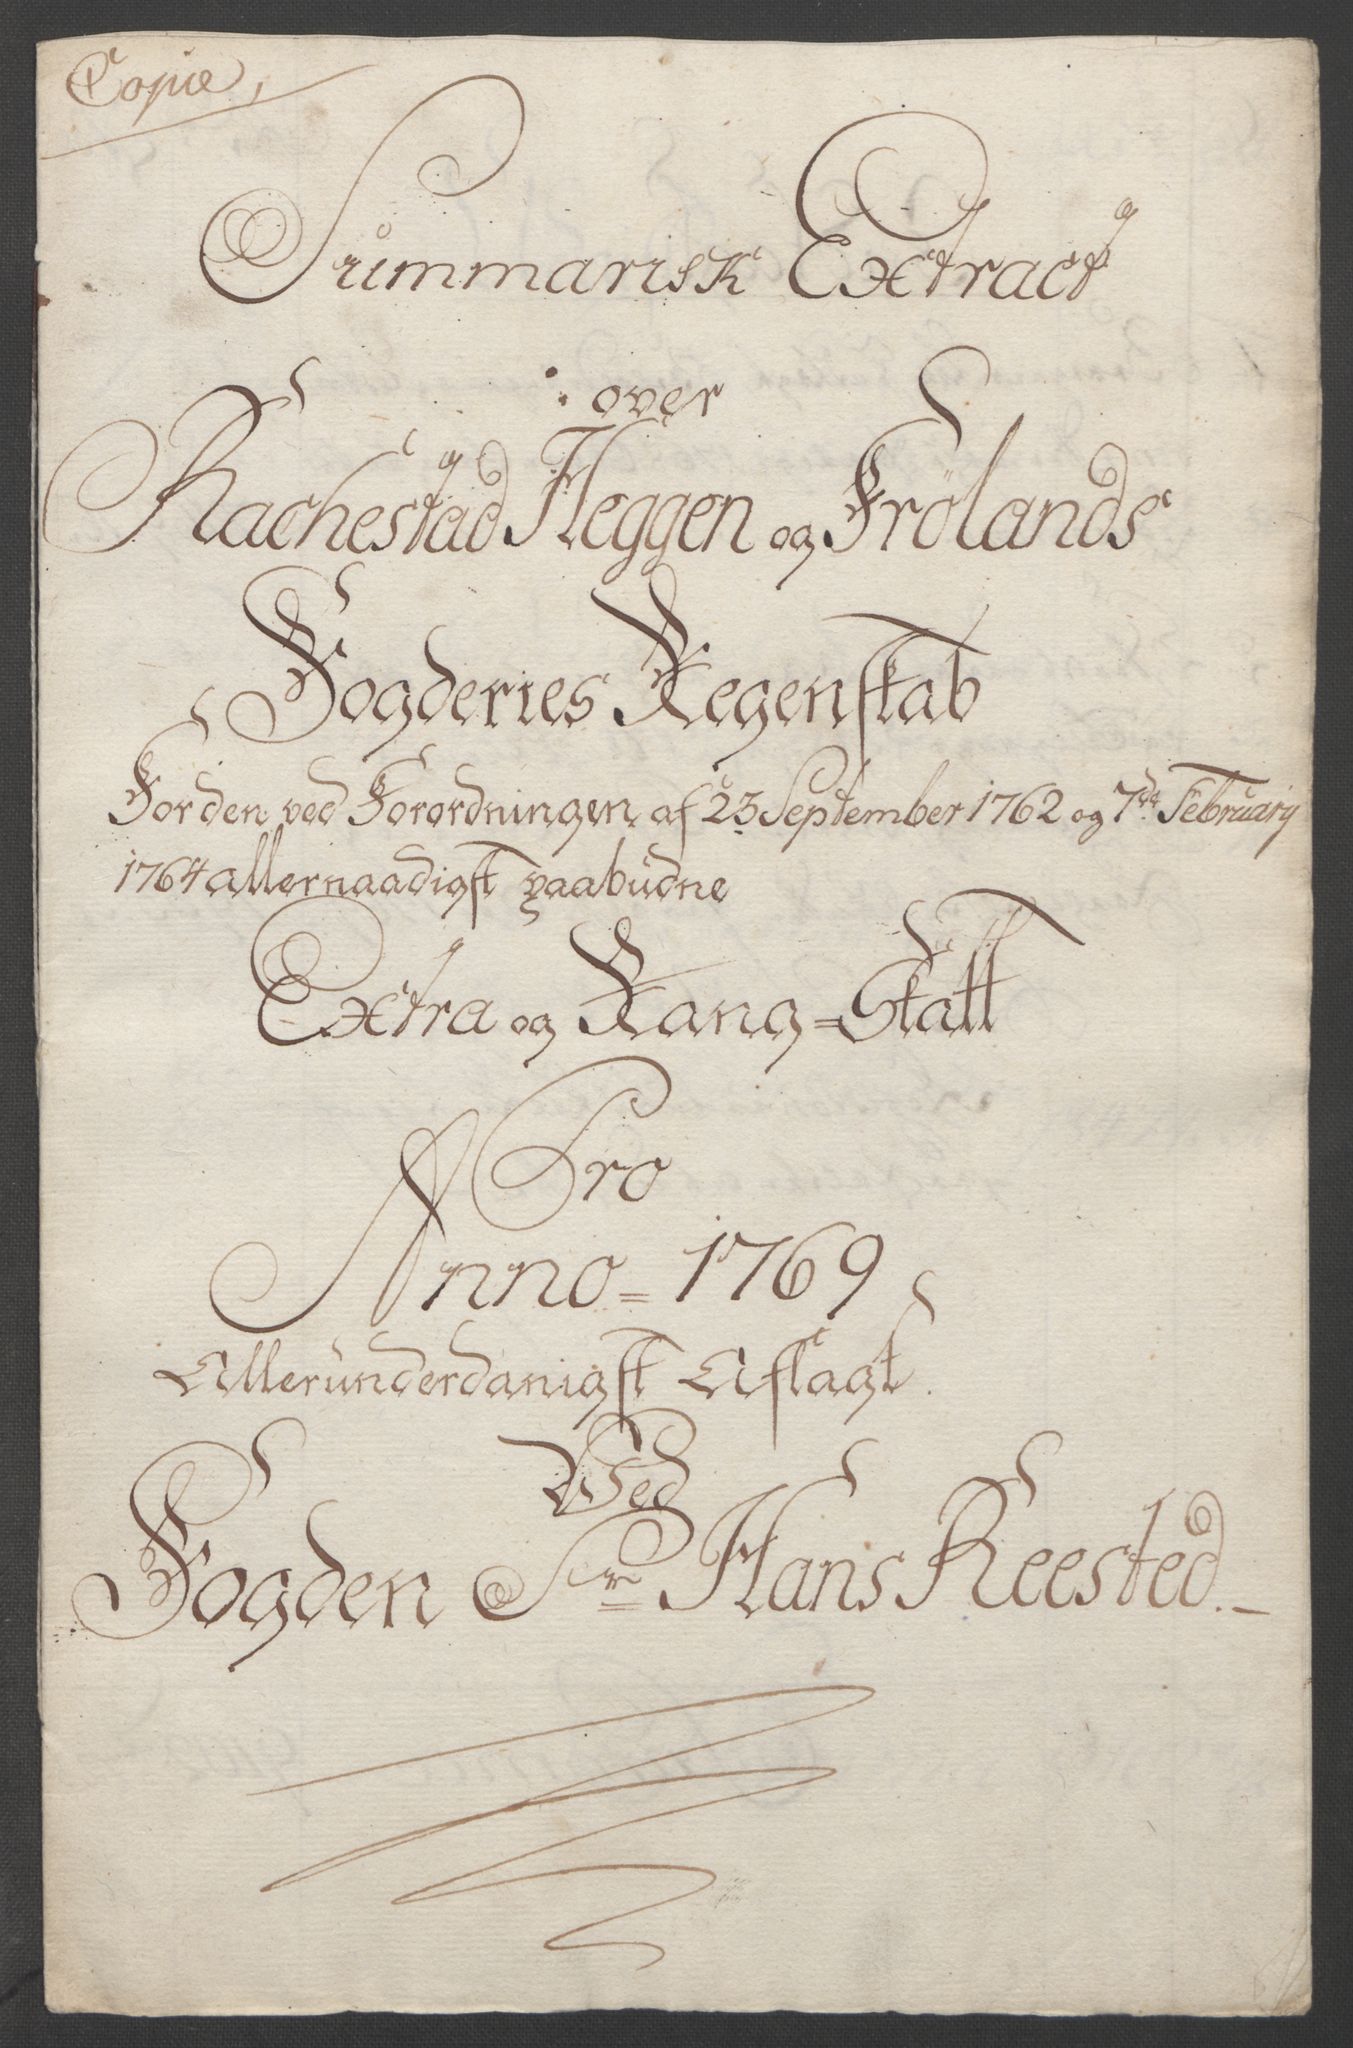 Copie,
Summarisk Extract
over
Rachestad Heggen og Frölands
Fogderies Regenskab
For den ved Forordningen af 23 September 1762 og 7de February
1764 allernaadigst paabudne
Extra og Rang=Skatt
Pro
Anno=1769
Allerunderdanigst Aflagt.
Ved
Fogden Sr Hans Reested.